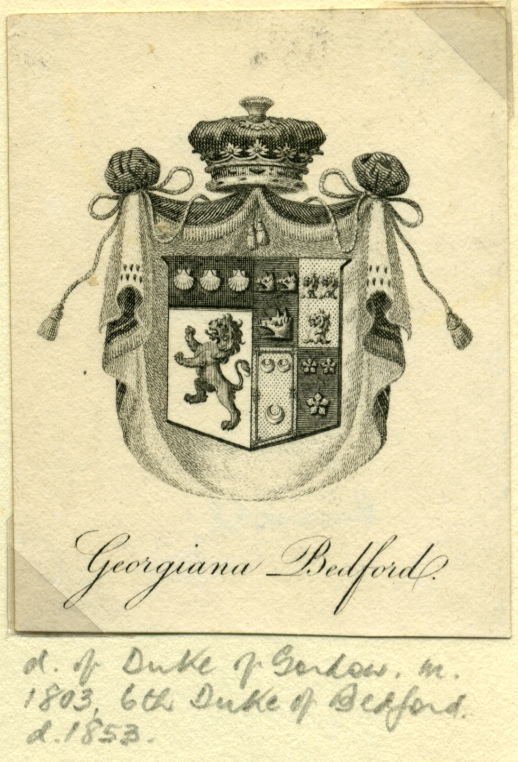 Georgiana Bedford.
d. of Duke of Gordon. m.
1803, 6th Duke of Bedford.
d. 1853.